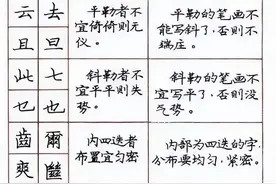 云 去
且 旦
平勒者不
宜倚倚则无
仪。
平勒的笔画不
能写斜了，否则不
端庄。
此 七
乜 也
斜勒者不
宜平平则失
势。
斜勒的笔画不
宜写平了，否则没
气势。
齒 爾
爽
内四迭者
布置宜匀密
内部为四迭的字，
分布要均匀，紧密。